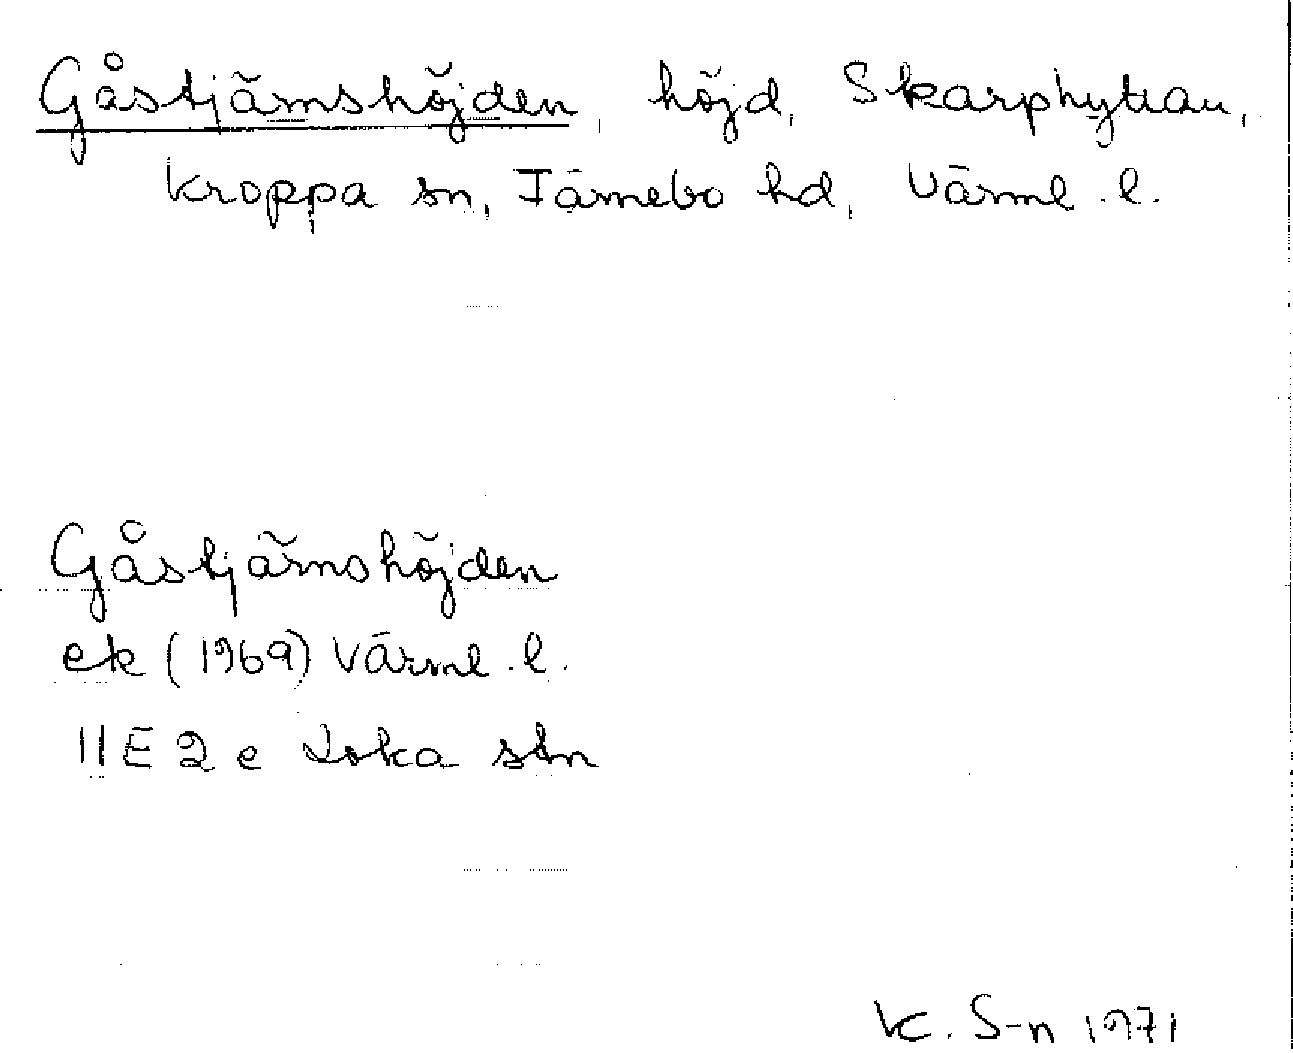 Gåstjärnshöjden, höjd, Skarphyttan,
Kroppa sn, Färnebo hd, Värml. l.
Gåstjärnshöjden
ek (1969) Värml. l.
11E 2 e Loka stn
K. S-n 1971